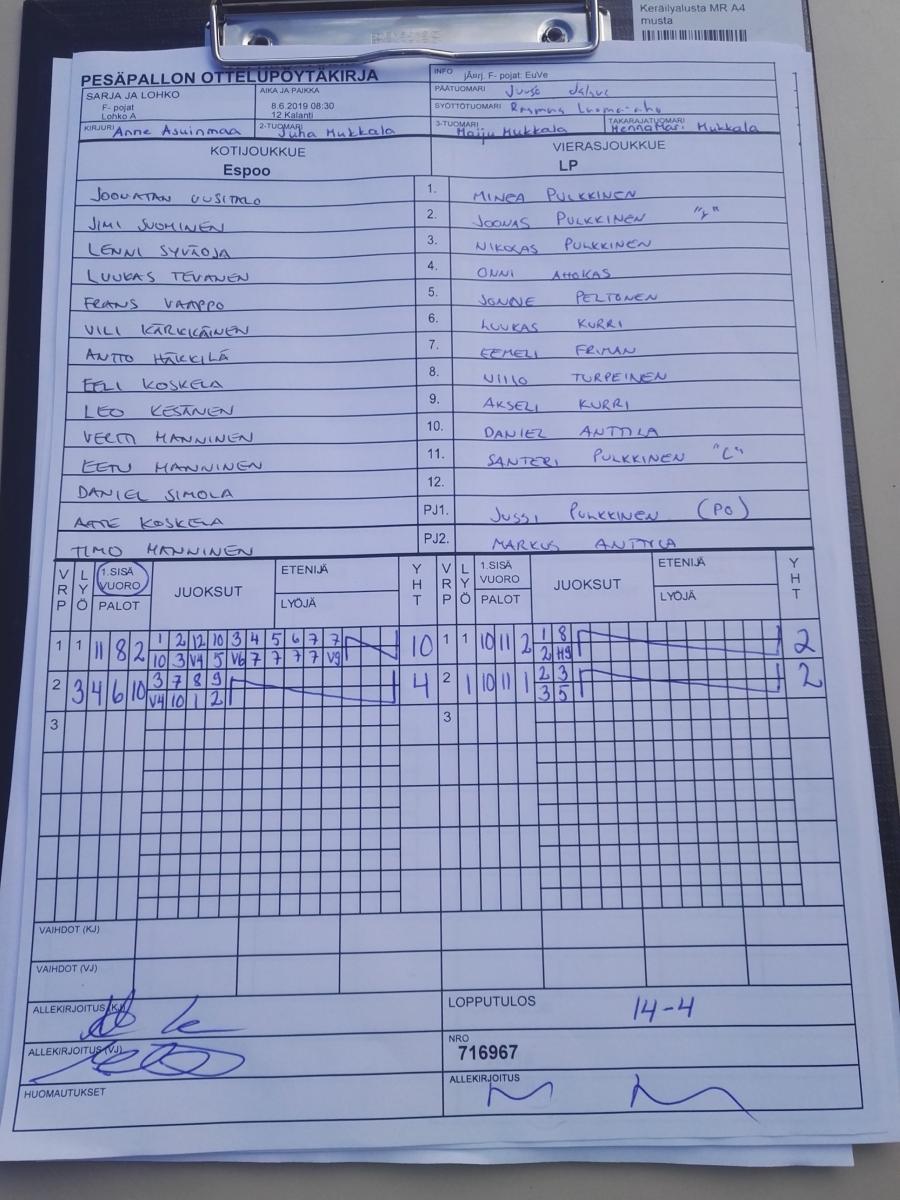 Keräilyalusta MR A4
musta
PESÄPALLON OTTELUPÖYTÄKIRJA
INFO jÄrj. F- pojat: EuVe
SARJA JA LOHKO
F- pojat
Lohko A
AIKA JA PAIKKA
8.6.2019 08:30
12 Kalanti
PÄÄTUOMARI Juuso
SYÖTTÖTUOMARI Rasmus Luoma-aho
KIRJURI Anne Asuinmaa 2-TUOMARI Juha Mukkala 3-TUOMARI Maiju Mukkala TAKARAJATUOMARI HennaMari Mukkala
KOTIJOUKKUE VIERASJOUKKUE
Espoo LP
JOONATAN UUSITALO 1. MINEA PULKKINEN
JIMI SUOMINEN 2. JOONAS PULKKINEN
LENNI SYVÄOJA 3. NIKOLAS PULKKINEN
LUUKAS TEVANEN 4. ONNI AHOKAS
FRANS VAAPPO 5. JONNE PELTONEN
VILI KÄRKKÄINEN 6. LUUKAS KURRI
ANTTO HÄKKILÄ 7. EEMELI FRIMAN
EELI KOSKELA 8. VILLO TURPEINEN
LEO KESÄNEN 9. AKSELI KURRI
VERTTI MANNINEN 10. DANIEL ANTTILA
EETU MANNINEN 11. SANTERI PULKKINEN "C"
DANIEL SIMOLA 12.
ATTE KOSKELA PJ1. JUSSI PULKKINEN (PO)
TIMO MANNINEN PJ2. MARKUS ANTTILA
VRP LYÖ 1.SISÄ VUORO PALOT JUOKSUT ETENIJÄ LYÖJÄ YHT VRP LYÖ 1.SISÄ VUORO PALOT JUOKSUT ETENIJÄ LYÖJÄ YHT
1 1 11 8 2 1 2 12 10 3 4 5 6 7 7 10 1 1 10 11 2 1 8 2
10 3 V4 5 V6 7 7 7 7 V9 2 H9
2 3 4 6 10 3 7 8 9 4 2 1 10 11 1 2 3 2
V4 10 1 2 3 5
3 3
VAIHDOT (KJ)
VAIHDOT (VJ)
ALLEKIRJOITUS (KJ) LOPPUTULOS 14-4
ALLEKIRJOITUS (VJ) NRO
716967
HUOMAUTUKSET ALLEKIRJOITUS